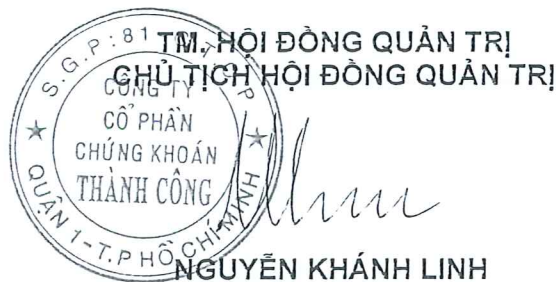 TM. HỘI ĐỒNG QUẢN TRỊ
CHỦ TỊCH HỘI ĐỒNG QUẢN TRỊ
S.G.P: 81
CÔNG TY
CỔ PHẦN
CHỨNG KHOÁN
THÀNH CÔNG
QUẬN 1 - T.P HỒ CHÍ MINH
NGUYỄN KHÁNH LINH